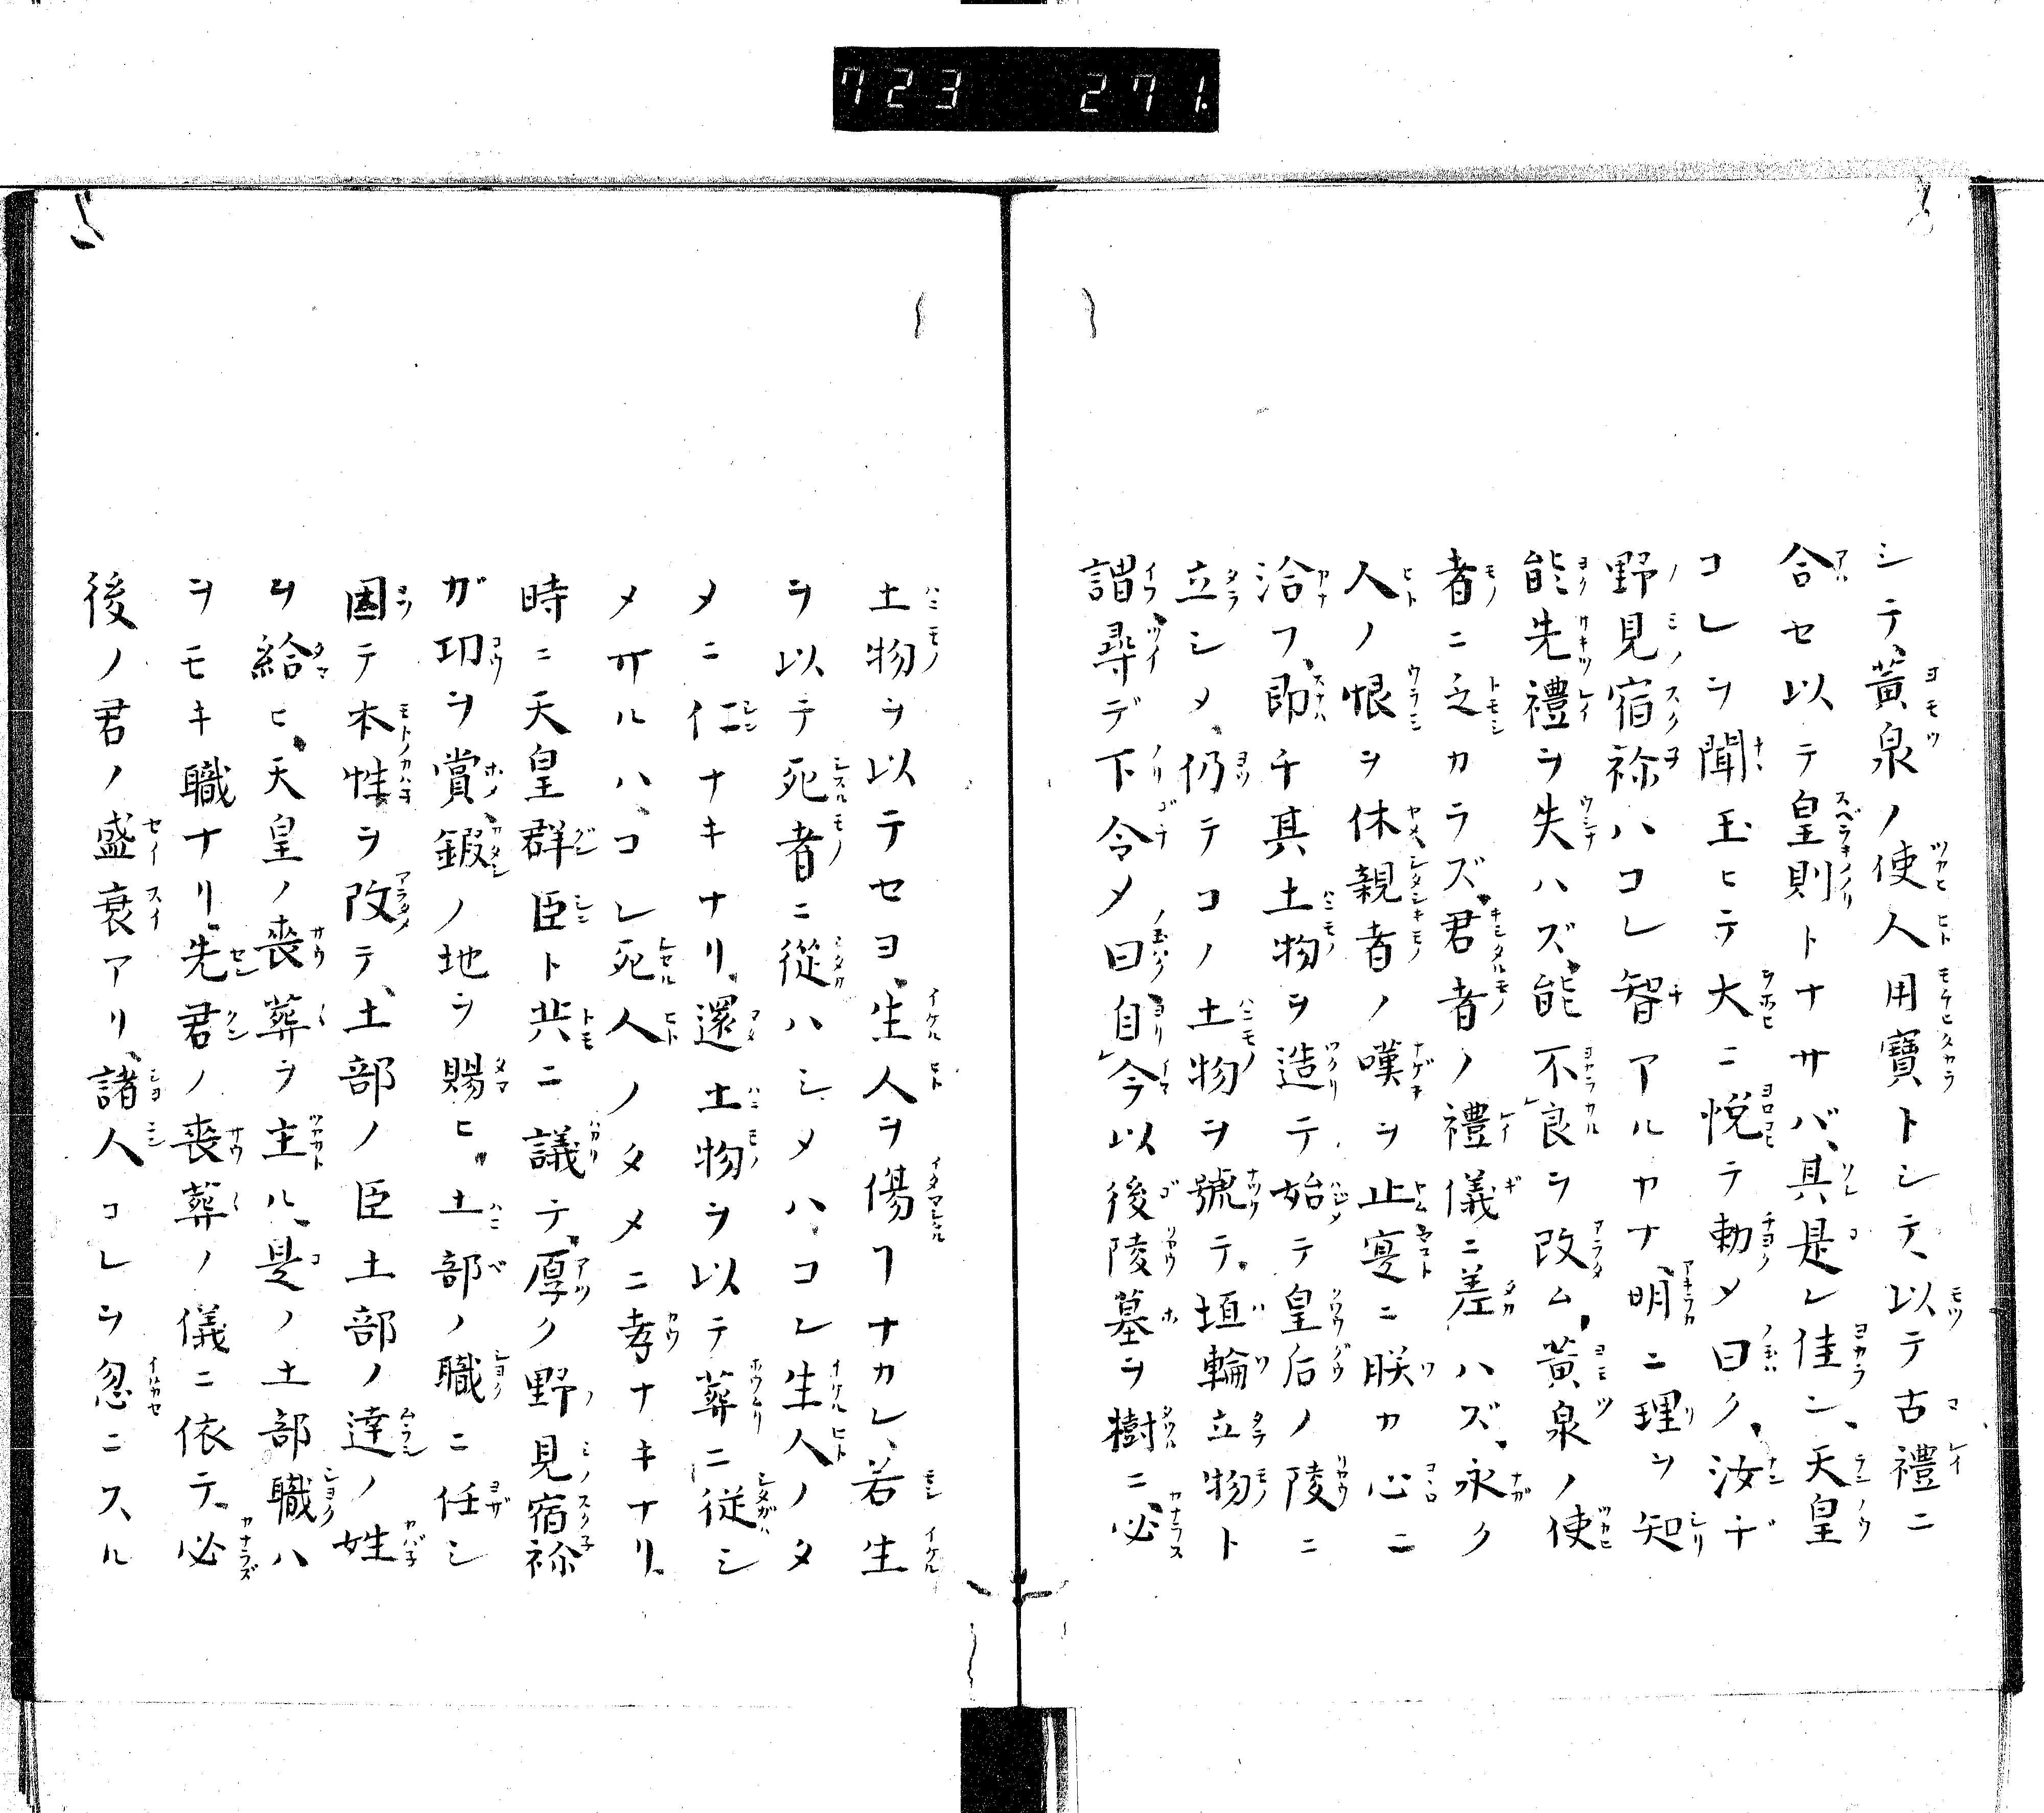 723 271.
シテ、黃泉ノ使人用寶トシテ、以テ古禮ニ
合セ以テ皇則トナサバ、其是レ佳シ、天皇
コレヲ聞玉ヒテ大ニ悅テ勅メ曰ク、汝ヂ
野見宿祢ハコレ智アルカナ、明ニ理ヲ知
能先禮ヲ失ハズ、能不良ヲ改ム、黃泉ノ使
者ニ乏カラズ、君者ノ禮儀ニ差ハズ、永ク
人ノ恨ヲ休親者ノ嘆ヲ止寔ニ朕カ心ニ
洽フ、卽チ其土物ヲ造テ始テ皇后ノ陵ニ
立シメ、仍テコノ土物ヲ號テ、垣輪立物ト
謂、尋デ下令メ曰、自今以後陵墓ヲ樹ニ必
土物ヲ以テセヨ、生人ヲ傷フナカレ、若生
ヲ以テ死者ニ從ハシメハ、コレ生人ノタ
メニ仁ナキナリ、還土物ヲ以テ葬ニ從シ
メサルハ、コレ死人ノタメニ孝ナキナリ、
時ニ天皇群臣ト共ニ議テ、厚ク野見宿祢
ガ功ヲ賞、鍜ノ地ヲ賜ヒ、土部ノ職ニ任シ
因テ本性ヲ改テ、土部ノ臣土部ノ達ノ姓
ヲ給ヒ、天皇ノ喪葬ヲ主ル、是ノ土部職ハ
ヲモキ職ナリ、先君ノ喪葬ノ儀ニ依テ、必
後ノ君ノ盛衰アリ、諸人コレヲ忽ニスル